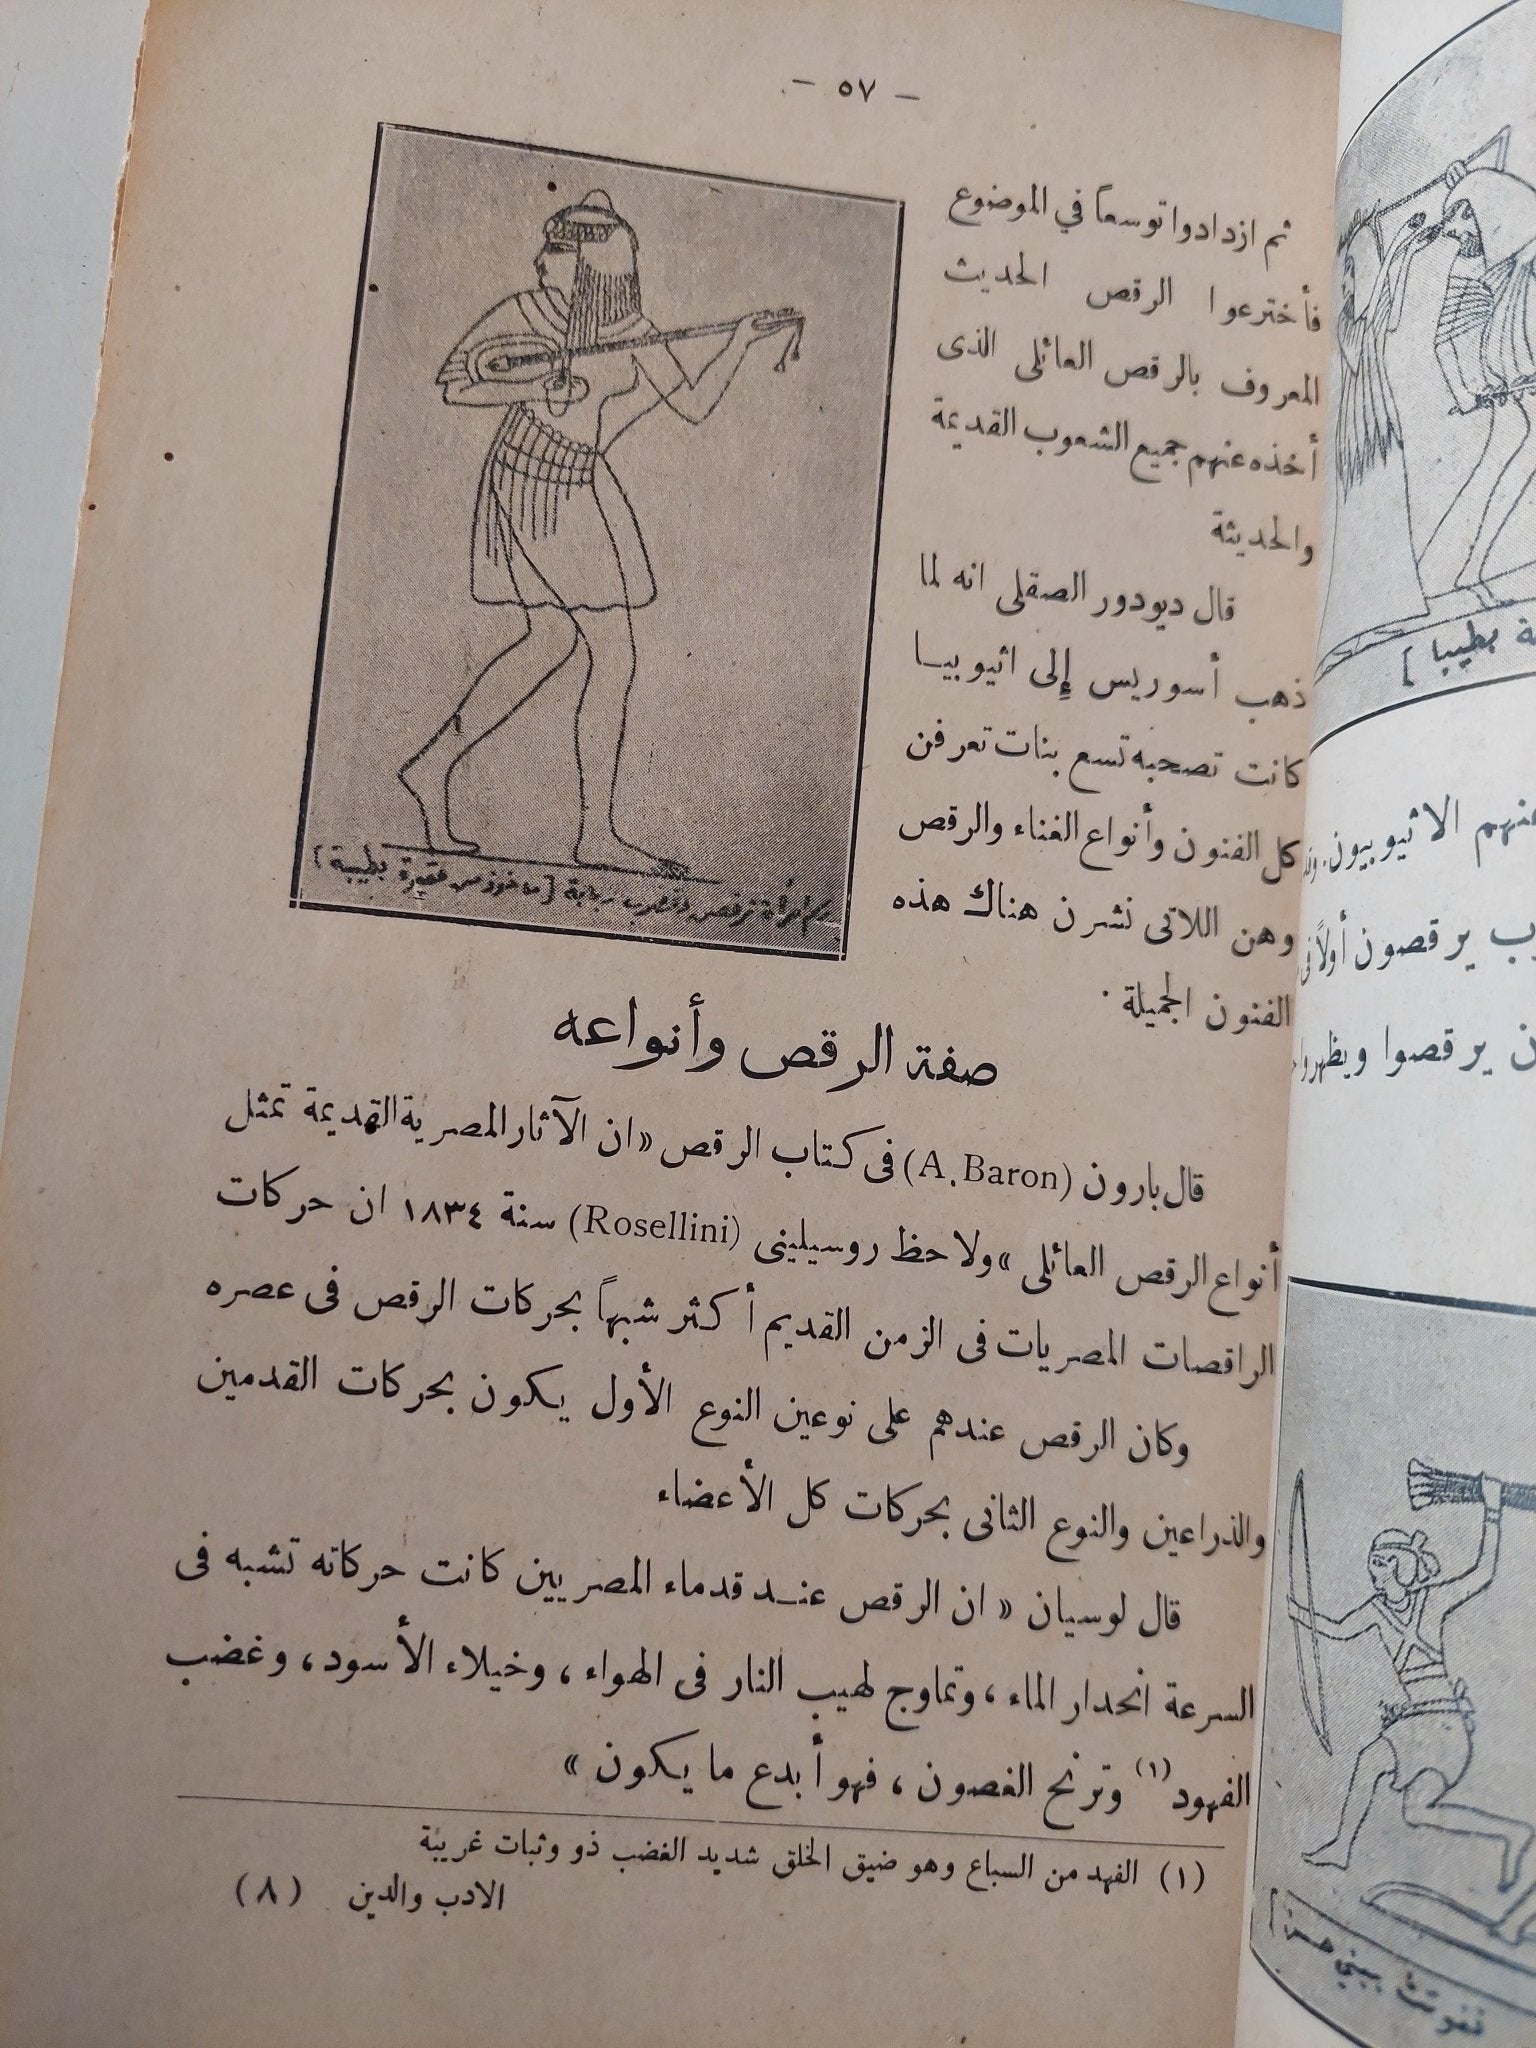 — ٥٧ —
ثم ازدادوا توسعاً في الموضوع
فأخترعوا الرقص الحديث
المعروف بالرقص العائلى الذى
أخذه عنهم جميع الشعوب القديمة
والحديثة
قال ديودور الصقلى انه لما
ذهب أسوريس إلى اثيوبيا
كانت تصحبه تسع بنات تعرفن
كل الفنون وأنواع الغناء والرقص
وهن اللاتى نشرن هناك هذه
الفنون الجميلة .
امرأة ترقص وتضرب ربابة [ماخوذ من مقبرة بطيبة]
صفة الرقص وأنواعه
قال بارون (A. Baron) فى كتاب الرقص « ان الآثار المصرية القديمة تمثل
أنواع الرقص العائلى » ولاحظ روسيلينى (Rosellini) سنة ١٨٣٤ ان حركات
الراقصات المصريات فى الزمن القديم أكثر شبهاً بحركات الرقص فى عصره
وكان الرقص عندهم على نوعين النوع الأول يكون بحركات القدمين
والذراعين والنوع الثانى بحركات كل الأعضاء
قال لوسيان « ان الرقص عند قدماء المصريين كانت حركاته تشبه فى
السرعة انحدار الماء ، وتماوج لهيب النار فى الهواء ، وخيلاء الأسود ، وغضب
الفهود (١) وترنح الغصون ، فهو أبدع ما يكون »
(١) الفهد من السباع وهو ضيق الخلق شديد الغضب ذو وثبات غريبة
الادب والدين (٨)
بطيبا ]
عنهم الاثيوبيون
يرقصون أولاً
يرقصوا ويظهروا
ببنى حسن ]